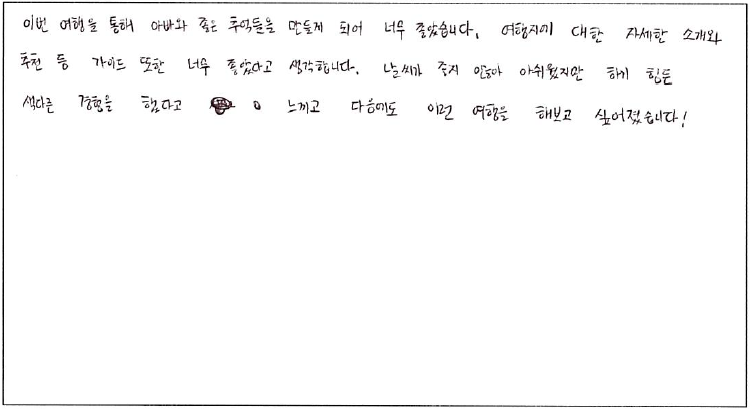 이번 여행을 통해 아빠와 좋은 추억들을 만들게 되어 너무 좋았습니다. 여행지에 대한 자세한 소개와
추천 등 가이드 또한 너무 좋았다고 생각합니다. 날씨가 좋지 않아 아쉬웠지만 하기 힘든
색다른 경험을 했다고 느끼고 다음에도 이런 여행을 해보고 싶어졌습니다!